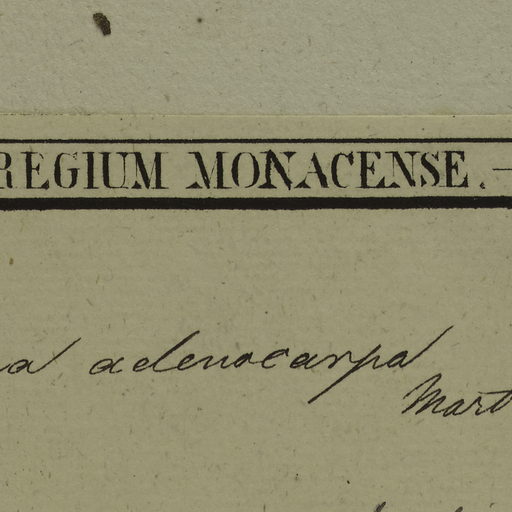 REGIUM MONACENSE. —
a adenocarpa
Mart